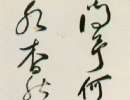 問予何
水杳然